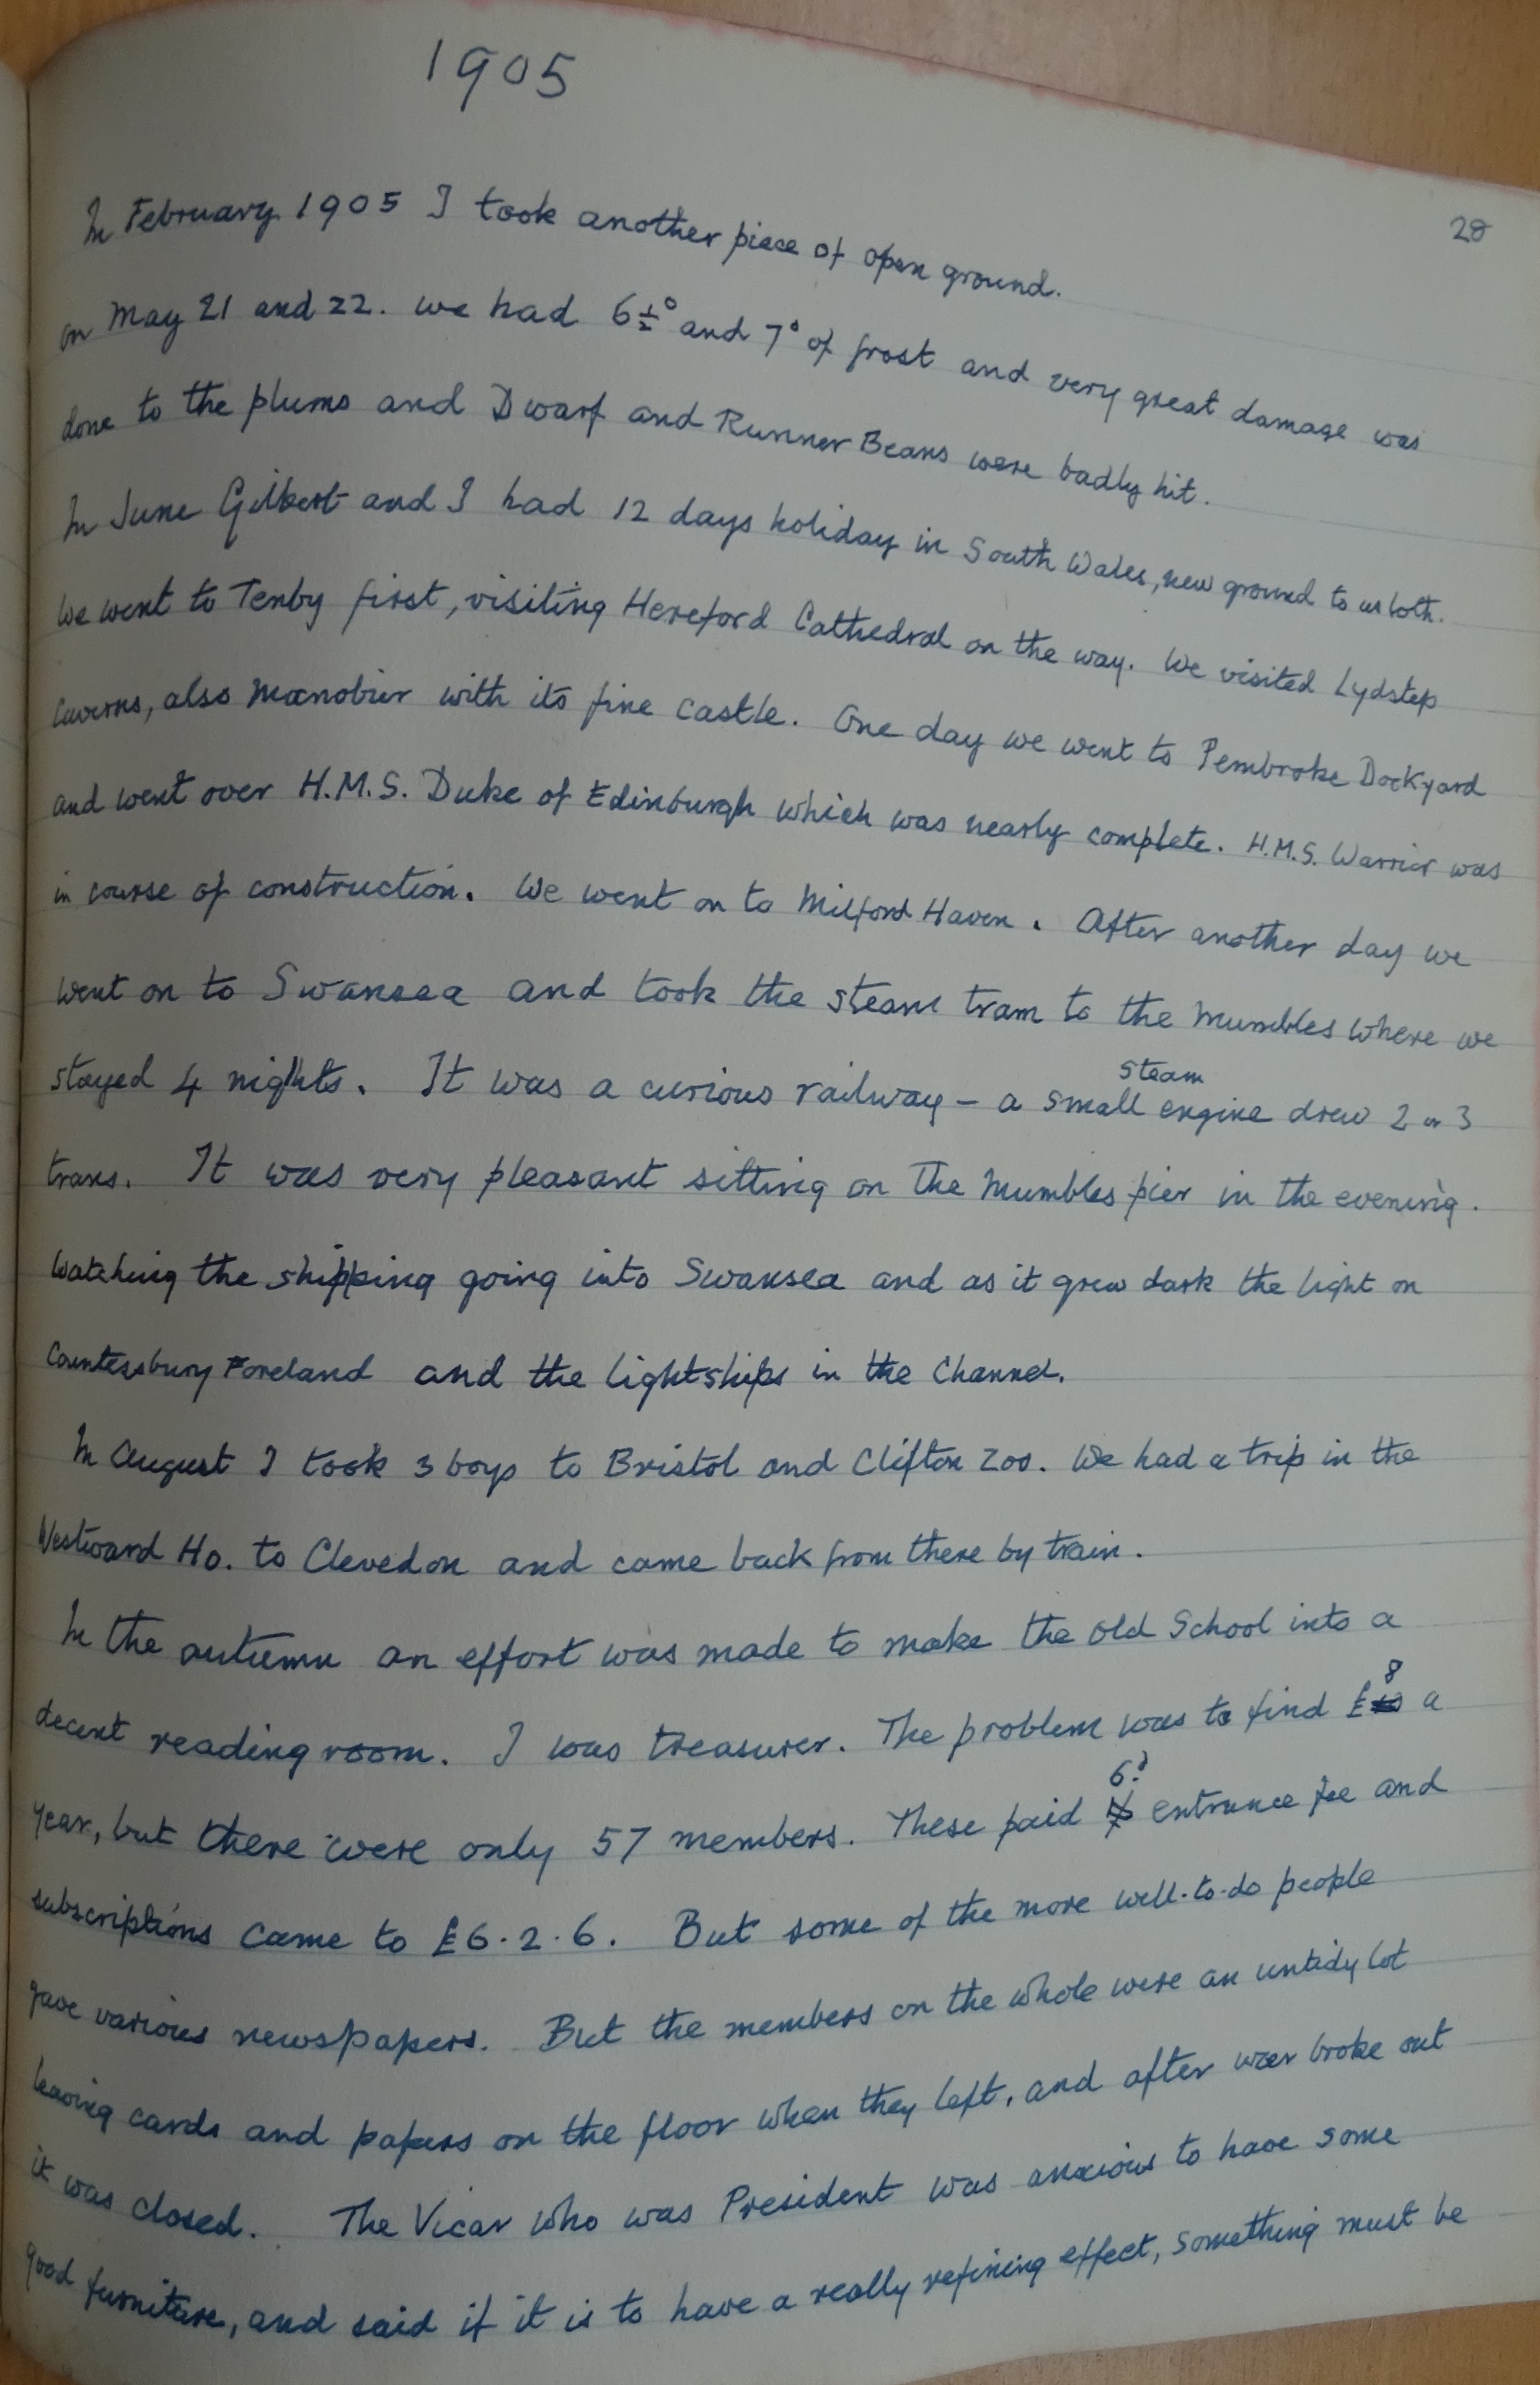 1905
28
In February 1905 I took another piece of open ground.
on May 21 and 22. we had 6½° and 7° of frost and very great damage was
done to the plums and Dwarf and Runner Beans were badly hit.
In June Gilbert and I had 12 days holiday in South Wales, new ground to us both.
We went to Tenby first, visiting Hereford Cathedral on the way. We visited Lydstep
Caverns, also Manobier with its fine castle. One day we went to Pembroke Dockyard
and went over H.M.S. Duke of Edinburgh which was nearly complete. H.M.S. Warrior was
in course of construction. We went on to Milford Haven. After another day we
went on to Swansea and took the steam tram to the Mumbles where we
stayed 4 nights. It was a curious railway – a small steam engine drew 2 or 3
trams. It was very pleasant sitting on the Mumbles pier in the evening.
watching the shipping going into Swansea and as it grew dark the light on
Countessbury Foreland and the lightships in the Channel.
In August I took 3 boys to Bristol and Clifton Zoo. We had a trip in the
Westward Ho. to Clevedon and came back from there by train.
In the autumn an effort was made to make the Old School into a
decent reading room. I was treasurer. The problem was to find £8 a
year, but there were only 57 members. These paid 6d entrance fee and
subscriptions came to £6.2.6. But some of the more well-to-do people
gave various newspapers. But the members on the whole were an untidy lot
leaving cards and papers on the floor when they left, and after war broke out
it was closed. The Vicar who was President was anxious to have some
good furniture, and said if it is to have a really refining effect, something must be